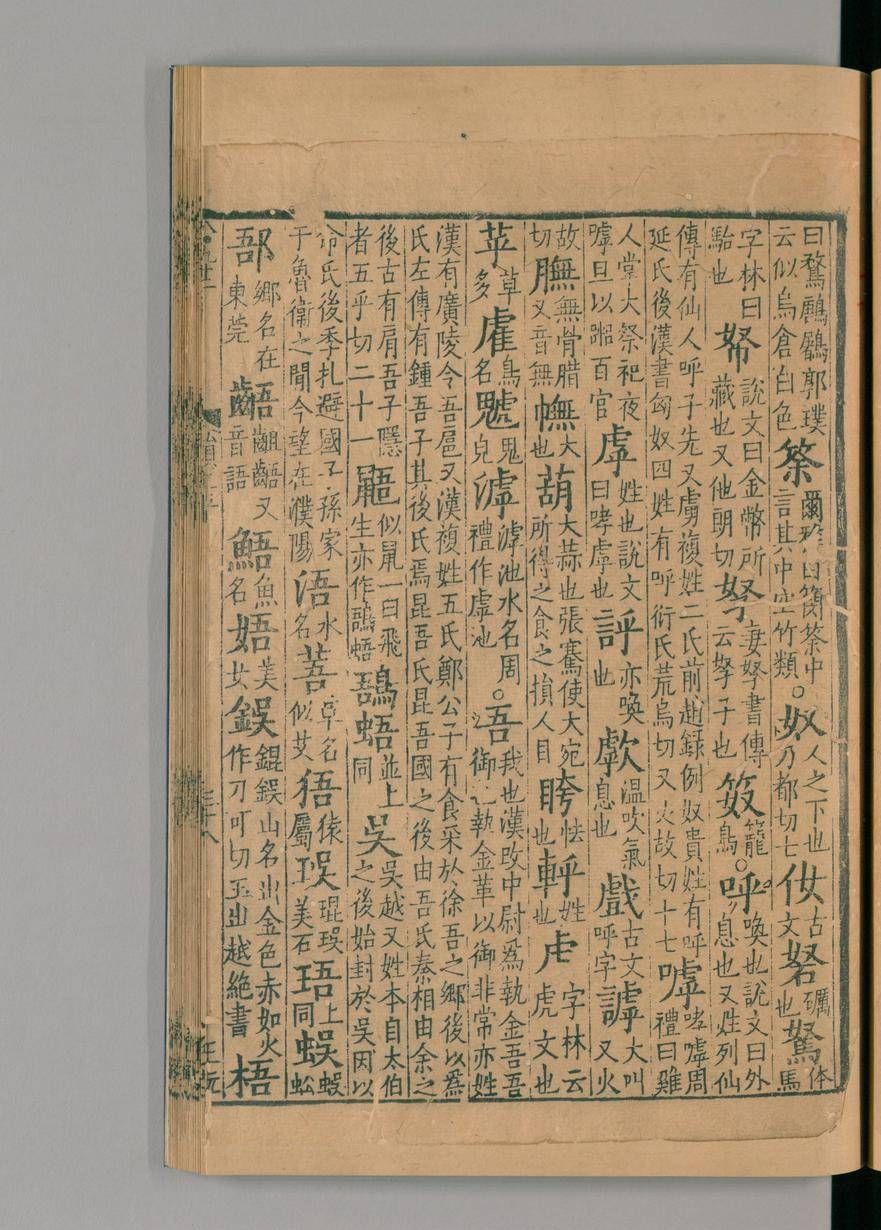 郭璞云似烏倉白色筡爾雅曰簡筡中言其中空竹類○奴人之下也乃都切七㚢古文砮礪也駑体馬
字林曰駘也帑說文曰金幣所藏也又他朗切孥妻孥書傳云孥子也笯籠鳥○呼喚也說文曰外息也又姓列仙
傳有仙人呼子先又虜複姓二氏前趙錄例奴貴姓有呼延氏後漢書匈奴四姓有呼衍氏荒烏切又火故切十七嘑哮嘑周禮曰雞
人掌大祭祀夜嘑旦以嘂百官虖姓也說文曰哮虖也評亦喚也歑温吹氣息也戲古文呼字謼大叫又火
故切膴無骨腊又音無幠大也葫大蒜也張騫使大宛所得之食之損人目䀪怯也軤姓也虍字林云虎文也
苸草多雐鳥名䰧鬼皃滹滹池水名周禮作虖池○吾我也漢攺中尉爲執金吾吾御也執金革以御非常亦姓
漢有廣陵令吾扈又漢複姓五氏鄭公子有食采於徐吾之鄉後以爲氏左傳有鍾吾子其後氏焉昆吾氏昆吾國之後由吾氏秦相由余之
後古有肩吾子隱者五乎切二十一鼯似鼠一曰飛生亦作䳎䳎並上同吳吳越又姓本自太伯之後始封於吳因以
命氏後季扎避國子孫家于魯衛之間今望在濮陽浯水名䓊草名似艾㹳猿屬琨美石珸上同蜈蜈蚣
郚鄉名在東莞齬齟齬又音語鯃魚名娪美女鋘錕鋘山名出金色赤如火作刀可切玉出越絶書梧